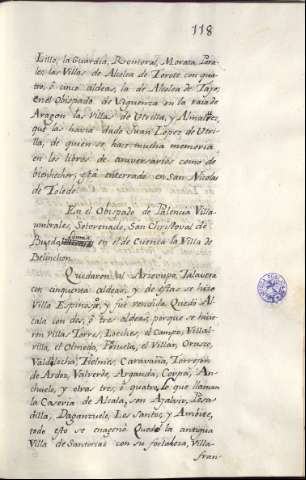 118
Lillo, la Guardia, Romeral, Morata, Pera-
les, las Villas de Alcolea de Torote con qua-
tro, ó cinco aldeas, la de Alcolea de Tajo,
En el Obispado de Siguenza en la raia de
Aragon las Villas de Utrilla, y Almaluez,
que las havia dado Juan Lopez de Utri-
lla, de quien se hace mucha memoria
en los libros de aniversarios como de
bienhechor, está enterrado en San Nicolas
de Toledo.
En el Obispado de Palencia Villa-
umbrales, Soverenado, San Christoval de
en el de Cuenca la Villa de
Belinchon.
Quedaron al Arzovispo Talavera
con cinquenta aldeas, y de estas se hizo
Villa Espinoso, y fue vendida. Quedó Al-
cala con dos, ó tres aldeas, porque se hicie-
ron villas Torres, Loeches, el Campo, Villal-
villa, el Olmeda, Pezuela, el Villar, Orusco,
Valdilecha, Tielmes, Caravaña, Torrejon
de Ardoz, Valverde, Arganda, Corpa, An-
chuelo, y otras tres, ó quatro, lo que llaman
la Caseria de Alcala, son Ajalvir, Posa-
dilla, Daganzuelo, Los Santos, y Ambite,
todo esto se enagenó. Quedó la antigua
Villa de Santorcaz con su fortaleza, Villa-
fran-